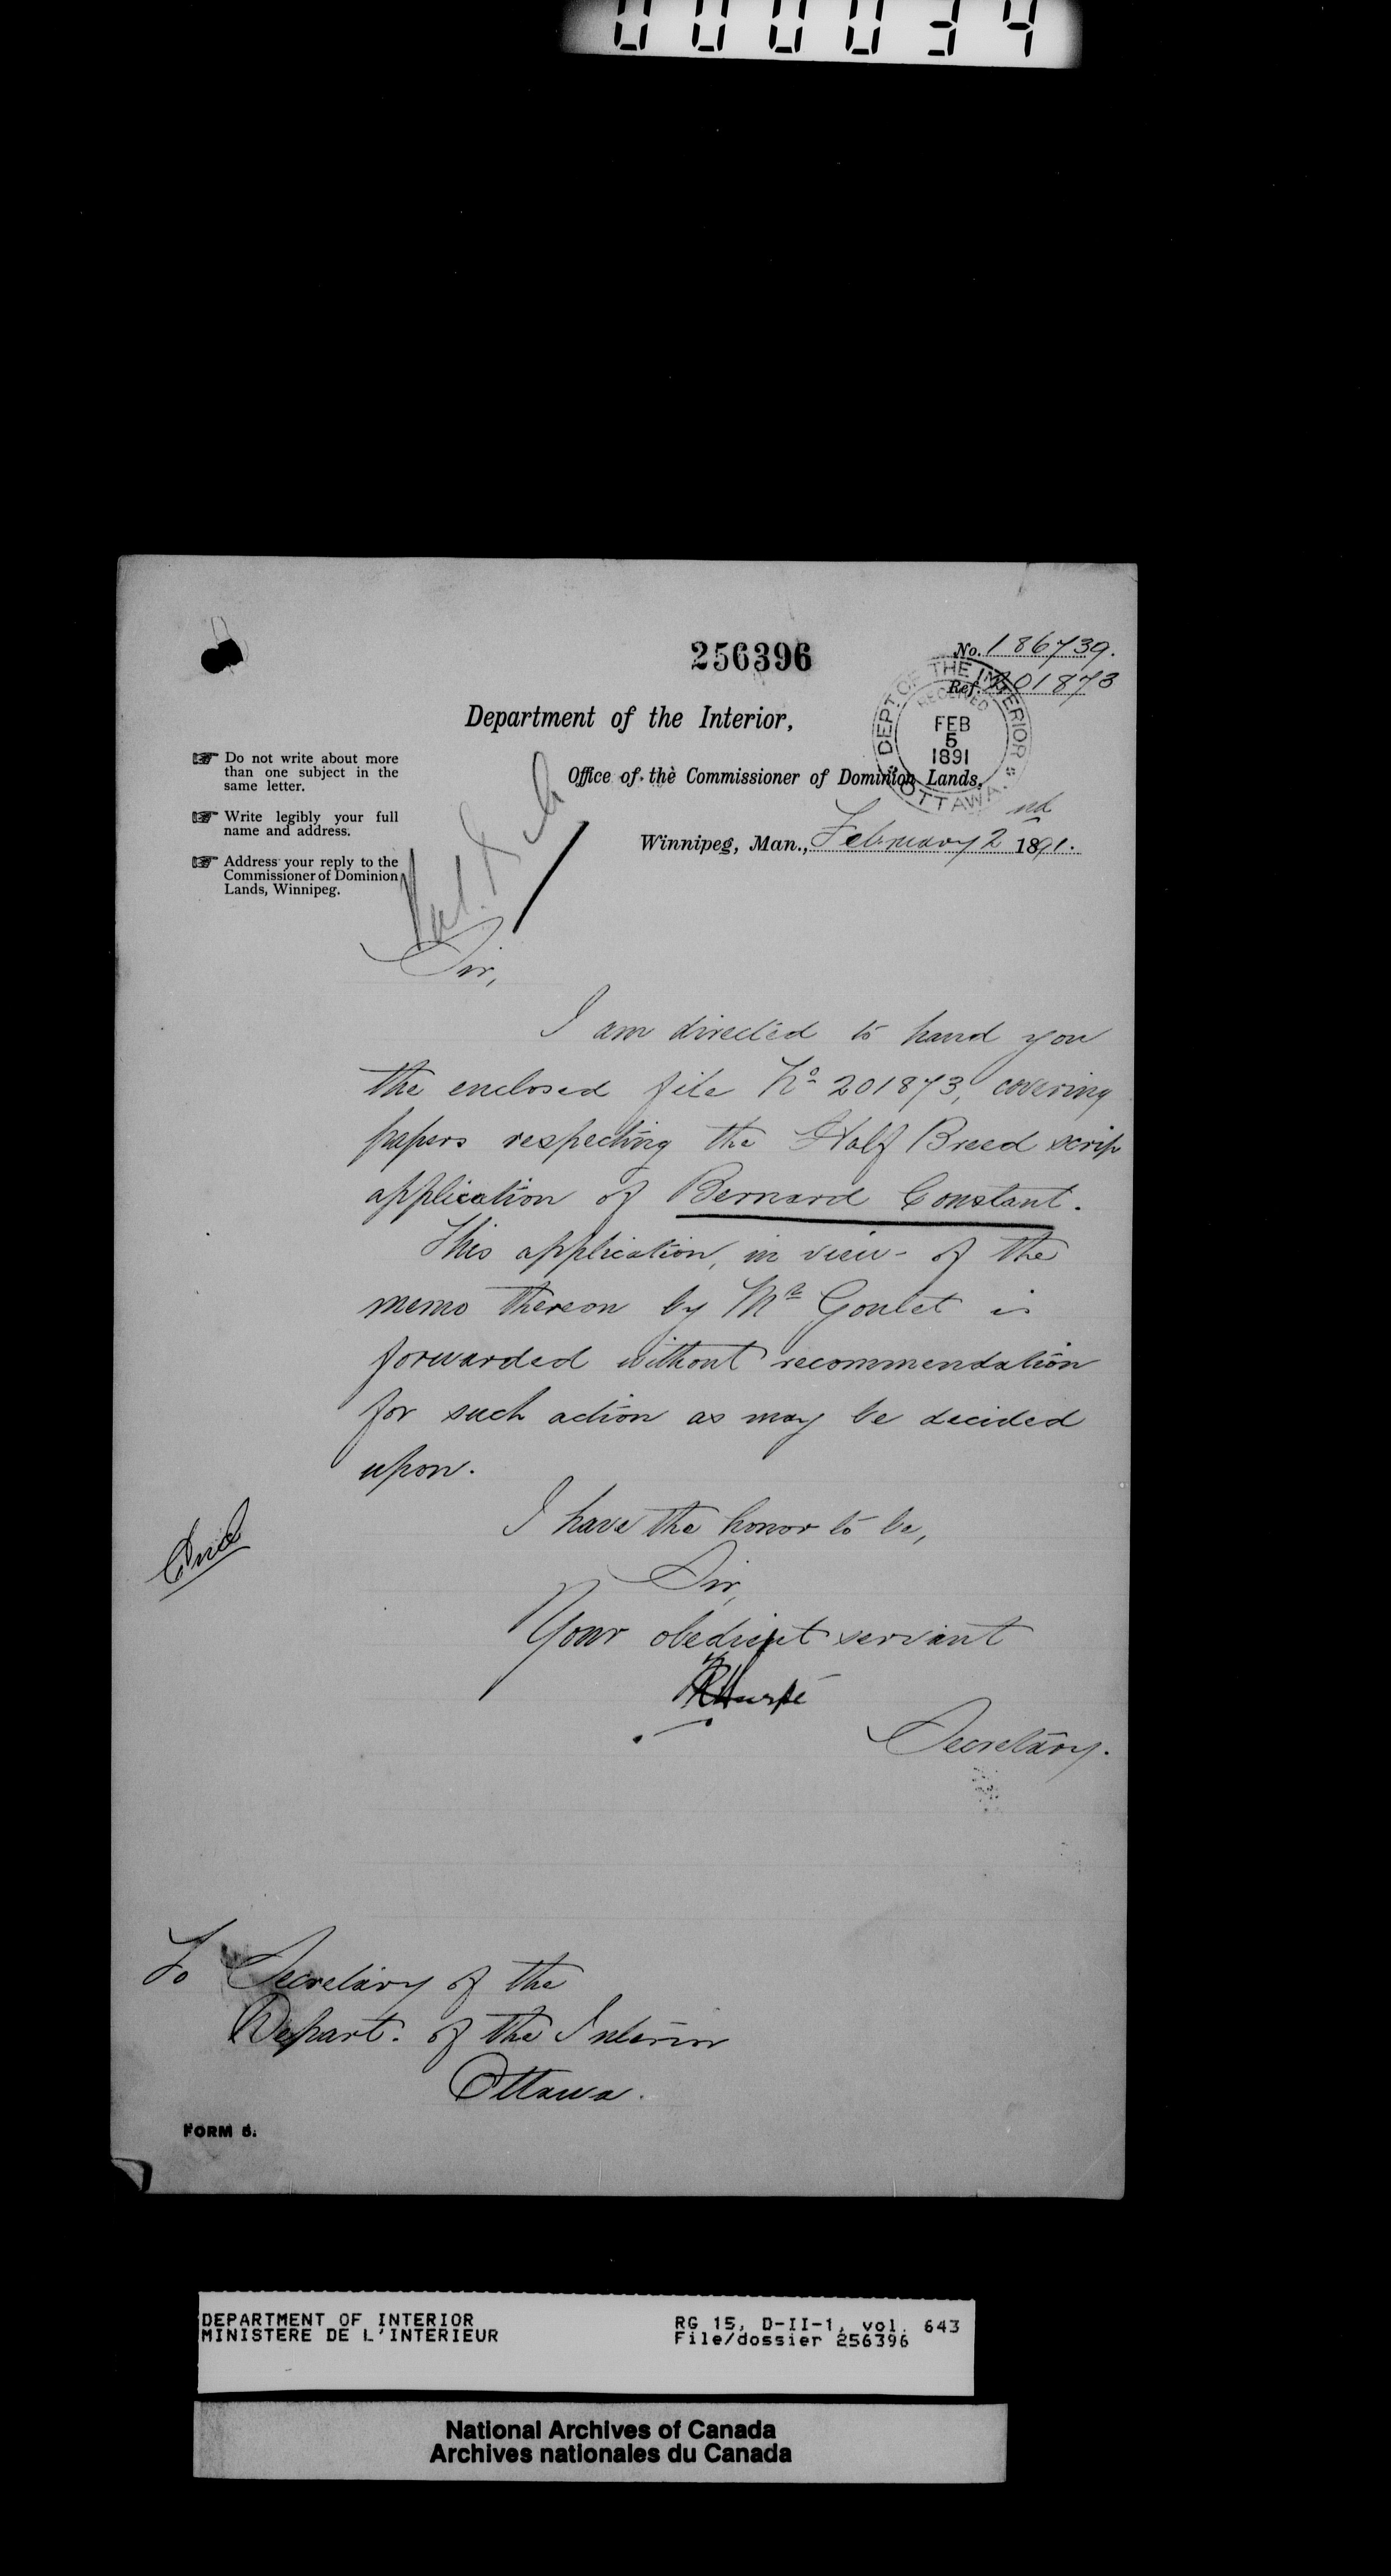 000034
256396
No. 186739.
Ref. 201873
DEPT. OF THE INTERIOR
RECEIVED
FEB
5
1891
OTTAWA.
Department of the Interior,
Office of the Commissioner of Dominion Lands,
Winnipeg, Man., February 2nd 1891.
☞ Do not write about more
than one subject in the
same letter.
☞ Write legibly your full
name and address.
☞ Address your reply to the
Commissioner of Dominion
Lands, Winnipeg.
Sir,
I am directed to hand you
the enclosed file No 201873, covering
papers respecting the Half Breed scrip
application of Bernard Constant.
This application, in view of the
memo thereon by Mr Goulet is
forwarded without recommendation
for such action as may be decided
upon.
I have the honor to be,
Sir,
Your obedient servant
Secretary.
To Secretary of the
Depart. of the Interior
Ottawa.
FORM 5.
DEPARTMENT OF INTERIOR
MINISTERE DE L'INTERIEUR
RG 15, D-II-1, vol. 643
File/dossier 256396
National Archives of Canada
Archives nationales du Canada